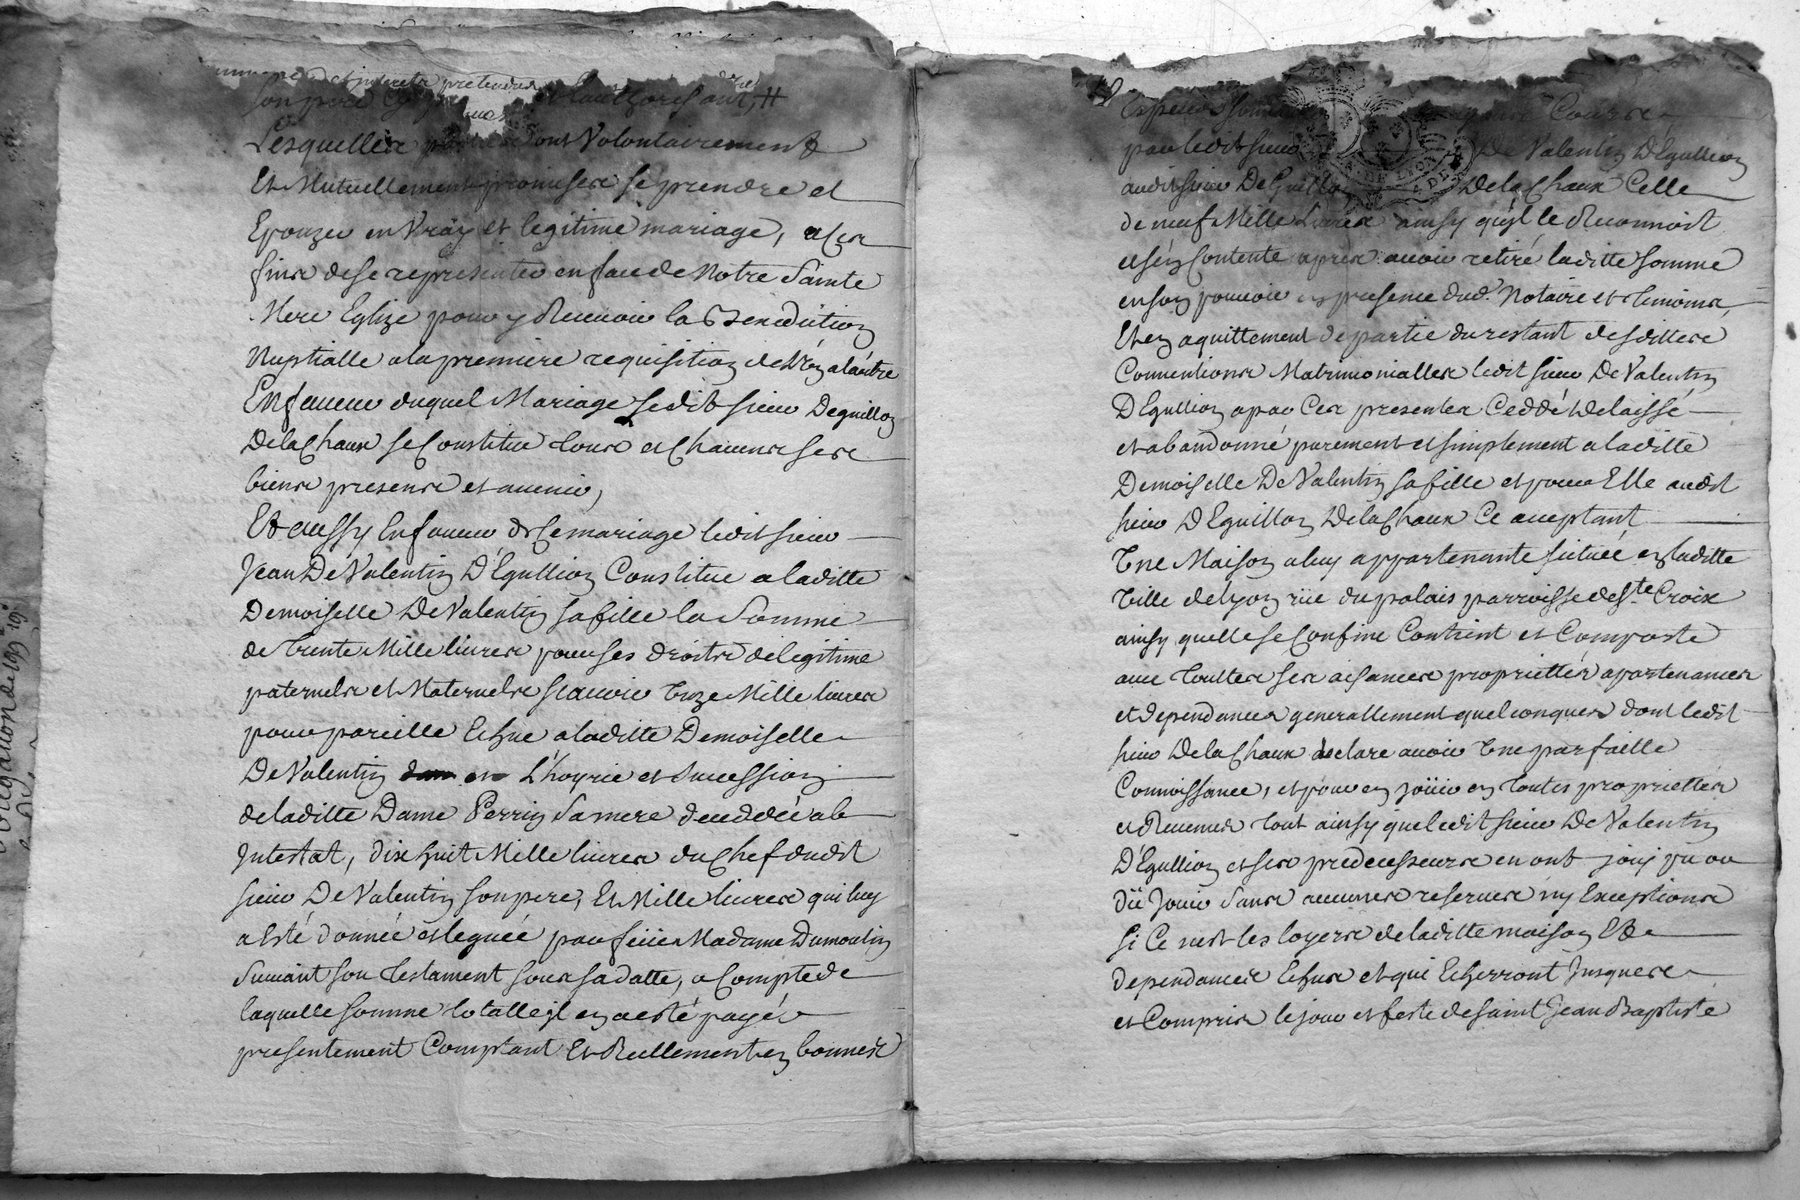 et interets pretendus
son pere
Lesquelles parties ont Volontairement
Et Mutuellement promises se prendre et
Epouzer en Vray et legitime mariage, a Ces
fins de se representer en face de Notre Sainte
Mere Eglize pour y Recevoir la Benediction
Nuptialle a la premiere requisition de Lún a laútre
En faveur duquel Mariage Ledit sieur Deguillon
Delachaux se Constitue tous et Chacuns ses
biens presens et avenir,
Et aussy En faveur de Ce mariage ledit sieur
Jean De Valentin D'Egullion Constitue a laditte
Demoiselle De Valentin sa fille la Somme
de trente Mille livres pour ses droits de legitime
paternels et Maternels scauoir Unze Mille livres
pour pareille Echue a laditte Demoiselle
De Valentin en L'hoyrie et Succession
de laditte Dame Perrin Sa mere deceddée ab
Intestat, dix huit Mille livres du Chef dudit
sieur De Valentin son pere, Et Mille livres qui luy
a Esté donnée et leguée par feüe Madame Dumoulin
Suivant son testament sous sa datte, a Compte de
laquelle somme totalle il en a esté payée
presentement Comptant Et Reellement en bonnes
Especes
par ledit sieur De Valentin D'Egullion
audit sieur De Guillon Delachaux Celle
de neuf Mille Livres ainsy qu'il le Reconnoist
et s'en Contente apres avoir retiré laditte somme
en son pouvoir en presence dud. Notaire et temoins,
Et en aquittement de partie du restant desdittes
Conventions Matrimonialles ledit sieur De Valentin
D'Egullion a par Ces presentes Ceddé Delaissé
et abandonné purement et simplement a laditte
Demoiselle De Valentin sa fille et pour Elle audit
sieur D'Eguillon Delachaux Ce aceptant
Une Maison a luy appartenante scituée en laditte
Ville de Lyon rüe du palais parroisse de Ste. Croix
ainsy quelle se Confine Contient et Comporte
avec touttes ses aisances proprietés apartenances
et dependances generallement quelconques dont ledit
sieur Delachaux declare avoir Une parfaitte
Connoissance, et pour en joüir en toutes proprietés
et Revenus tout ainsy que ledit sieur De Valentin
D'Egullion et ses predecesseurs en ont joüy pu ou
dü Joüir Sans aucunes reserves ny Exceptions
Si Ce n'est les loyers de laditte maison Et
dependances Echus et qui Echerront Jusques
et Compris le jour et feste de saint Jean Baptiste